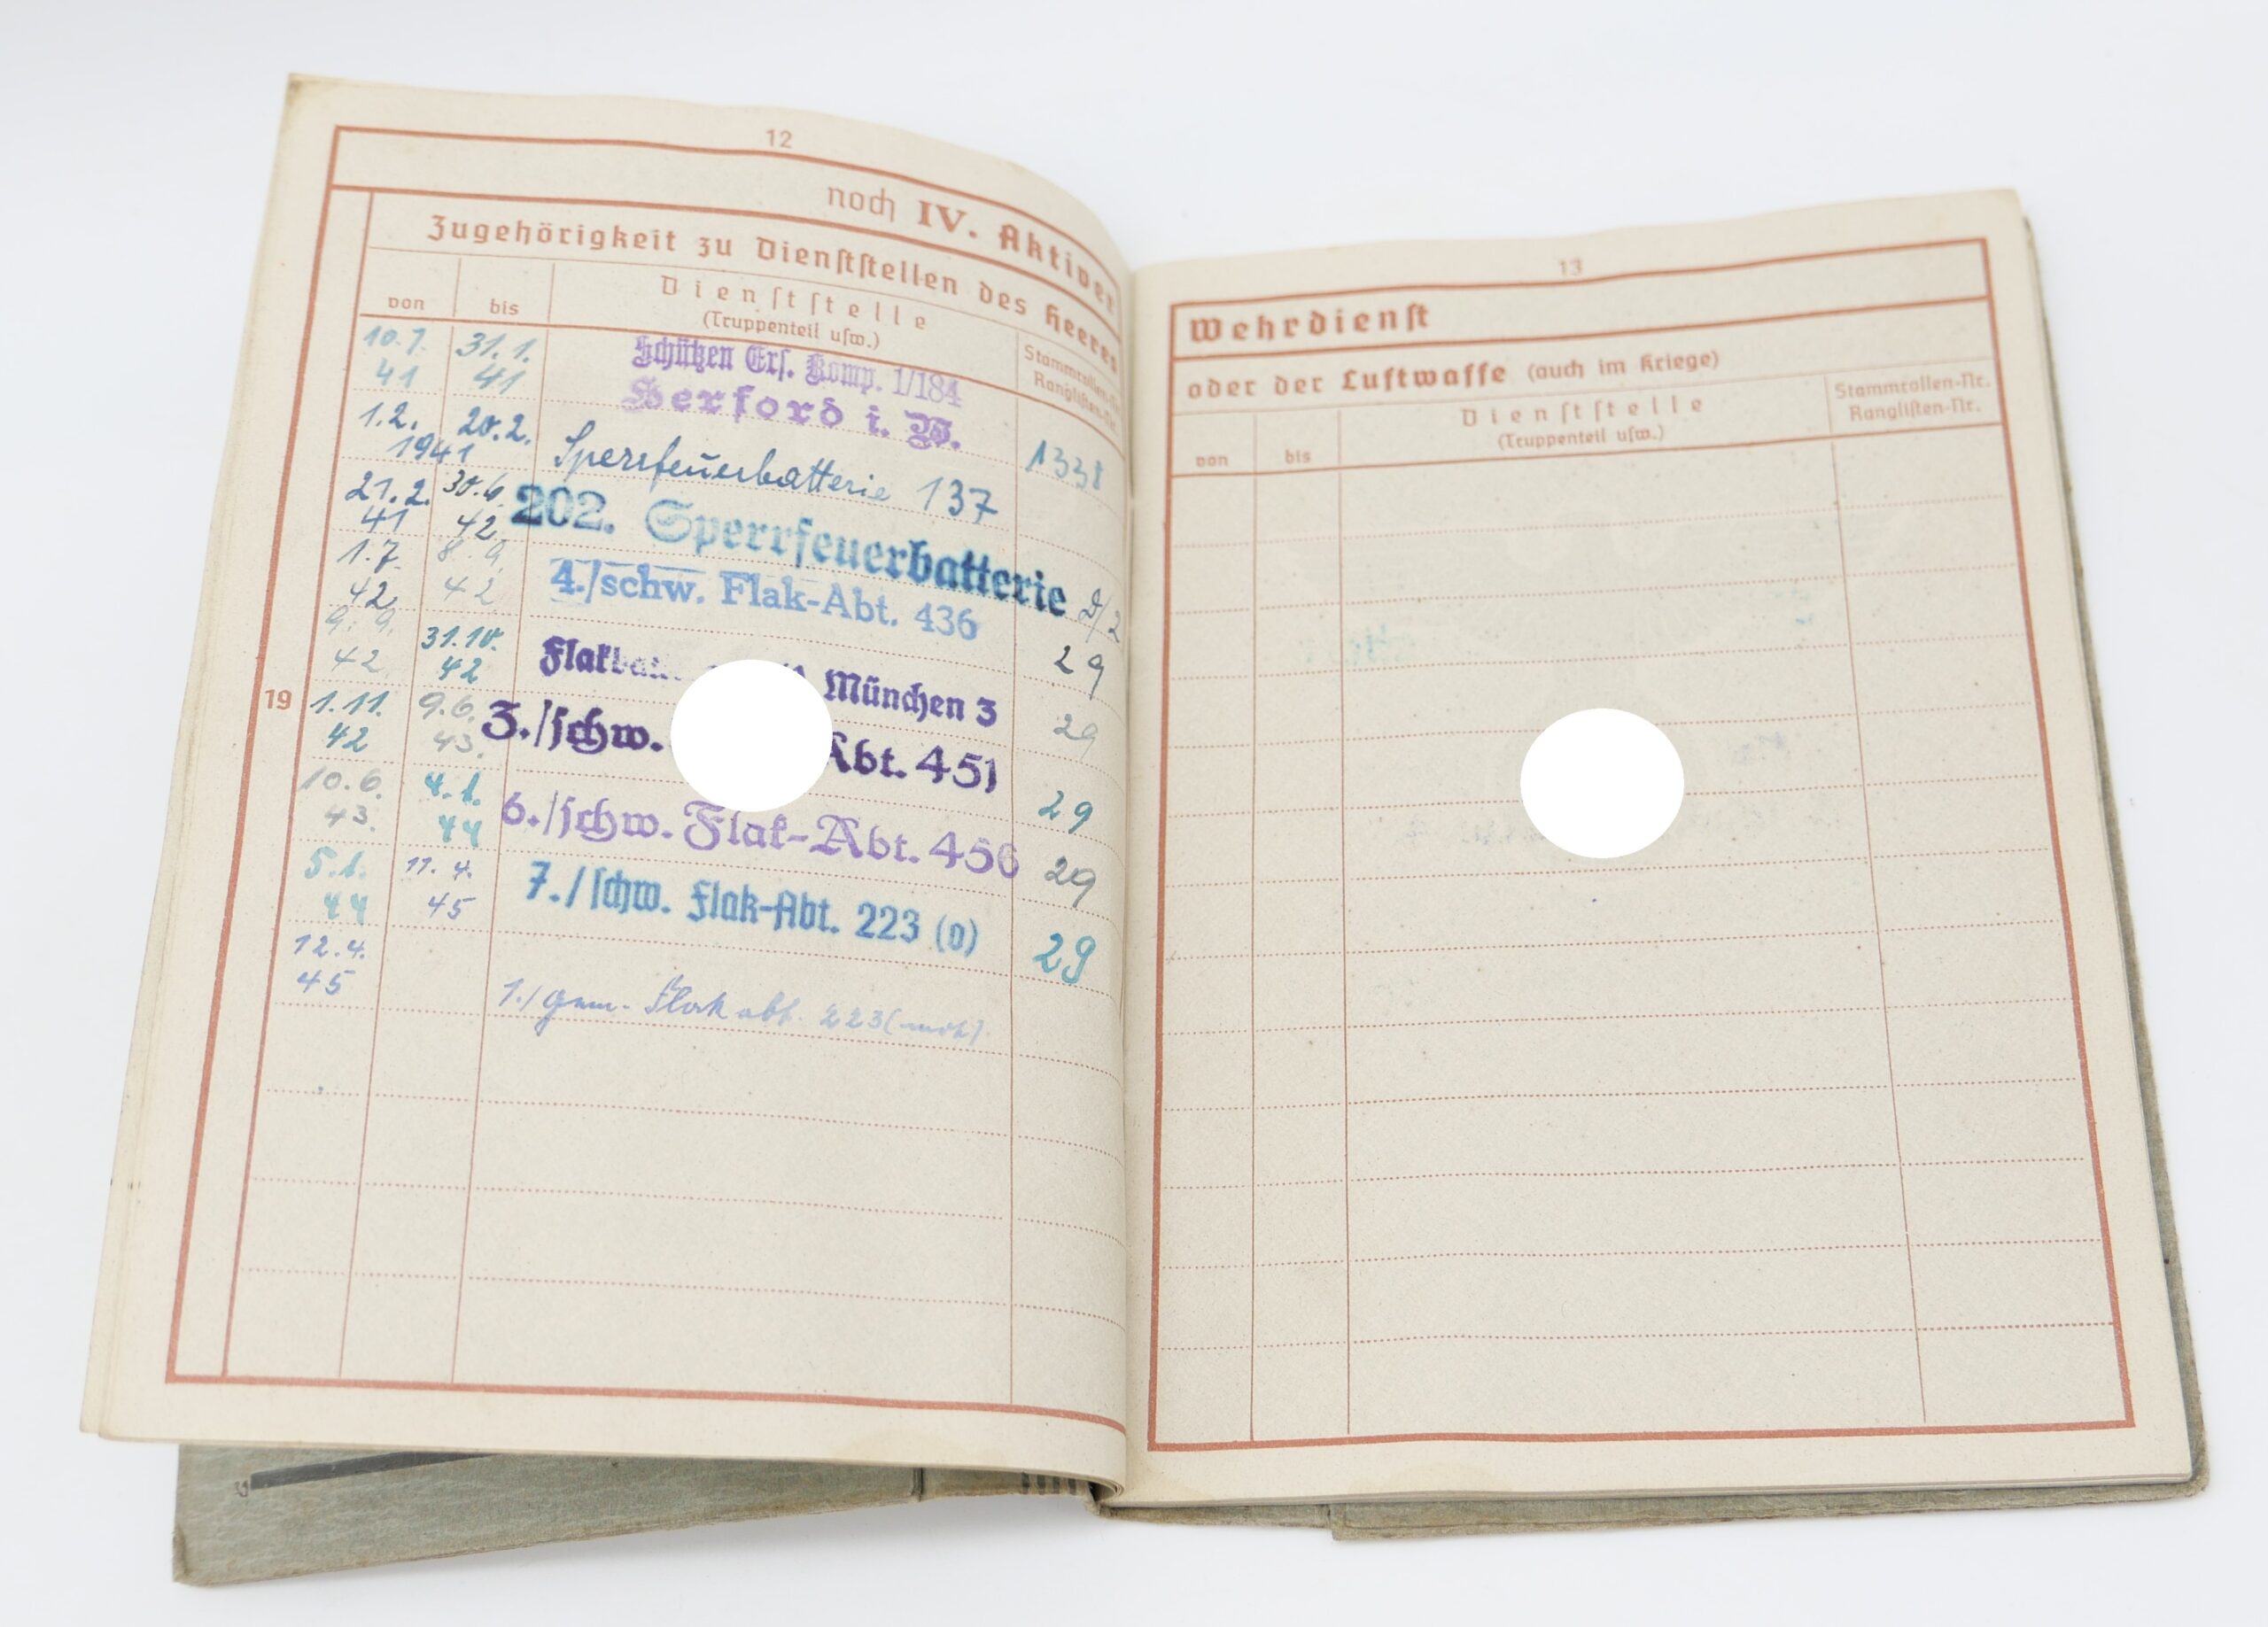 12
noch IV. Aktiver
Zugehörigkeit zu Dienststellen des Heeres
von bis Dienststelle
(Truppenteil usw.)
Stammrollen-Nr.
Ranglisten-Nr.
10.1. 31.1. Schützen Ers. Komp. 1/184
41 41 Herford i. W. 1338
1.2. 20.2. Sperrfeuerbatterie 137
1941
21.2. 30.6. 202. Sperrfeuerbatterie
41 42
1.7. 8.9. 4./schw. Flak-Abt. 436 29
42 42
9.9. 31.10. München 3 29
42 42
19
1.11. 9.6. 3./schw. Abt. 451 29
42 43.
10.6. 4.1. 6./schw. Flak-Abt. 456 29
43. 44
5.1. 11.4. 7./schw. Flak-Abt. 223 (o) 29
44 45
12.4.
45 1./ Flakabt. 223 (mot)
13
Wehrdienst
oder der Luftwaffe (auch im Kriege)
von bis Dienststelle
(Truppenteil usw.)
Stammrollen-Nr.
Ranglisten-Nr.